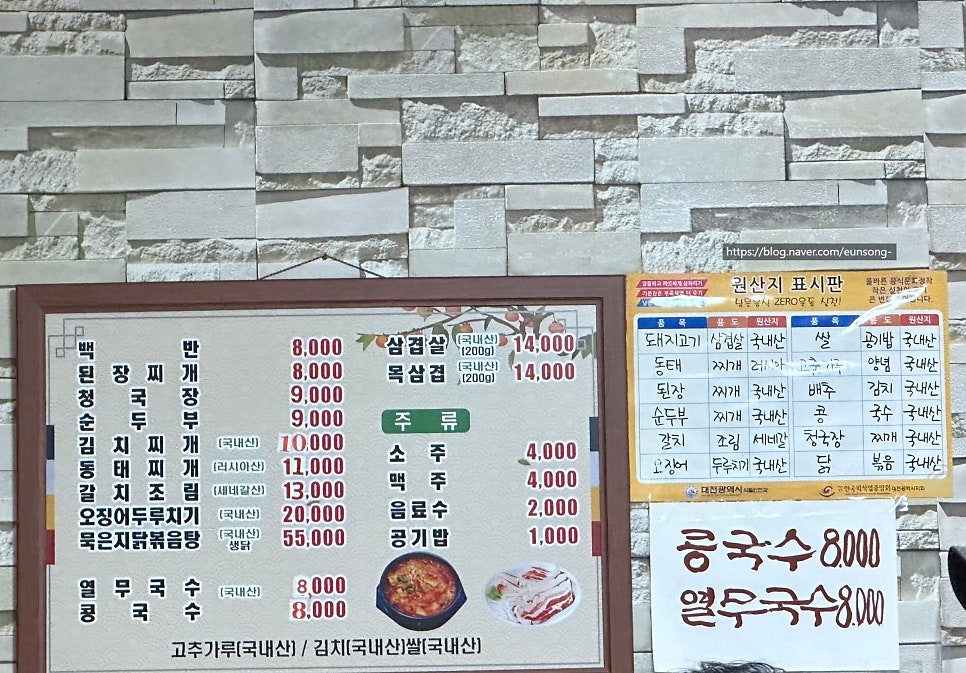 https://blog.naver.com/eunsong-
백반 8,000
된장찌개 8,000
청국장 9,000
순두부 9,000
김치찌개 (국내산) 10,000
동태찌개 (러시아산) 11,000
갈치조림 (세네갈산) 13,000
오징어두루치기 (국내산) 20,000
묵은지닭볶음탕 (국내산) 생닭 55,000
열무국수 (국내산) 8,000
콩국수 8,000
삼겹살 (국내산) (200g) 14,000
목삼겹 (국내산) (200g) 14,000
주류
소주 4,000
맥주 4,000
음료수 2,000
공기밥 1,000
고추가루(국내산) / 김치(국내산)쌀(국내산)
원산지 표시판
ZERO운동
품목 용도 원산지 품목 용도 원산지
돼지고기 삼겹살 국내산 쌀 공기밥 국내산
동태 찌개 러시아 고춧가루 양념 국내산
된장 찌개 국내산 배추 김치 국내산
순두부 찌개 국내산 콩 국수 국내산
갈치 조림 세네갈 청국장 찌개 국내산
오징어 두루치기 국내산 닭 볶음 국내산
대전광역시 한국외식업중앙회 대전광역시지회
콩국수 8.000
열무국수 8.000